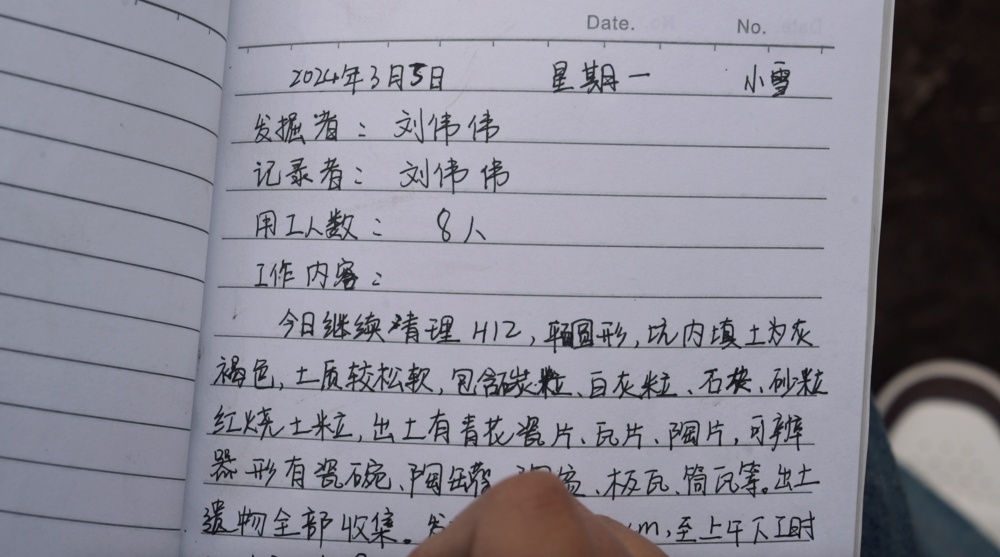 Date. No.
2024年3月5日 星期一 小雪
发掘者：刘伟伟
记录者：刘伟伟
用工人数：8人
工作内容：
今日继续清理H12，平面圆形，坑内填土为灰
褐色，土质较松软，包含碳粒、白灰粒、石块、砂粒
红烧土粒，出土有青花瓷片、瓦片、陶片，可辨
器形有瓷碗、陶缸、板瓦、筒瓦等。出土
遗物全部收集。m，至上午下工时